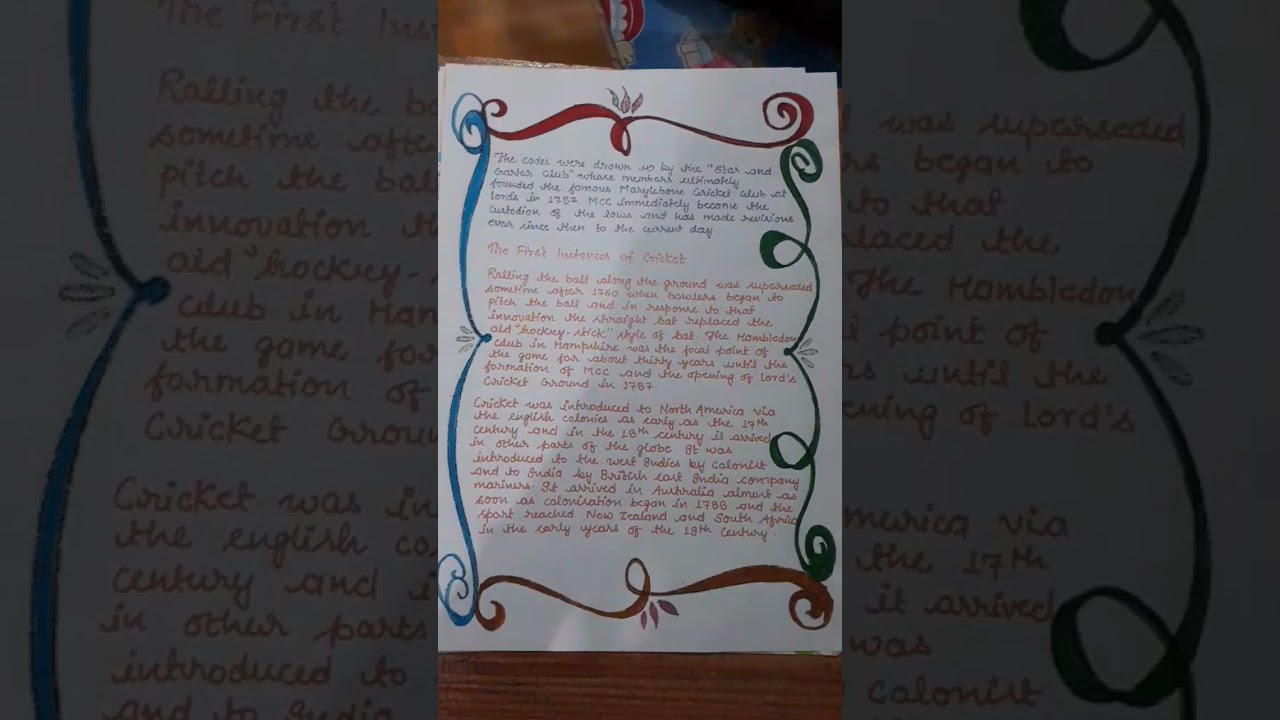 The codes were drown up by the "Star and
Garter Club" whose members ultimately
founded the famous Marylebone Cricket Club at
lords in 1787 MCC immediately become the
custodion of the lows and has made revisions
ever since then to the current day
The First Instances of Cricket
Ralling the ball along the ground was superseded
sometime after 1760 when bowlers began to
pitch the ball and in response to that
innovation the straight bat replaced the
old "hockey-stick" style of bat. The Hambledon
Club in Hampshire was the focal point of
the game for about thirty years until the
formation of MCC and the opening of Lord's
Cricket Ground in 1787.
Cricket was introduced to North America via
the english colonies as early as the 17th
century and in the 18th century it arrived
in other parts of the globe. It was
introduced to the west Indies by Colonist
and to India by British east India company
mariners. It arrived in Australia almost as
soon as colonisation began in 1788 and the
sport reached New Zealand and South Africa
in the early years of the 19th Century.